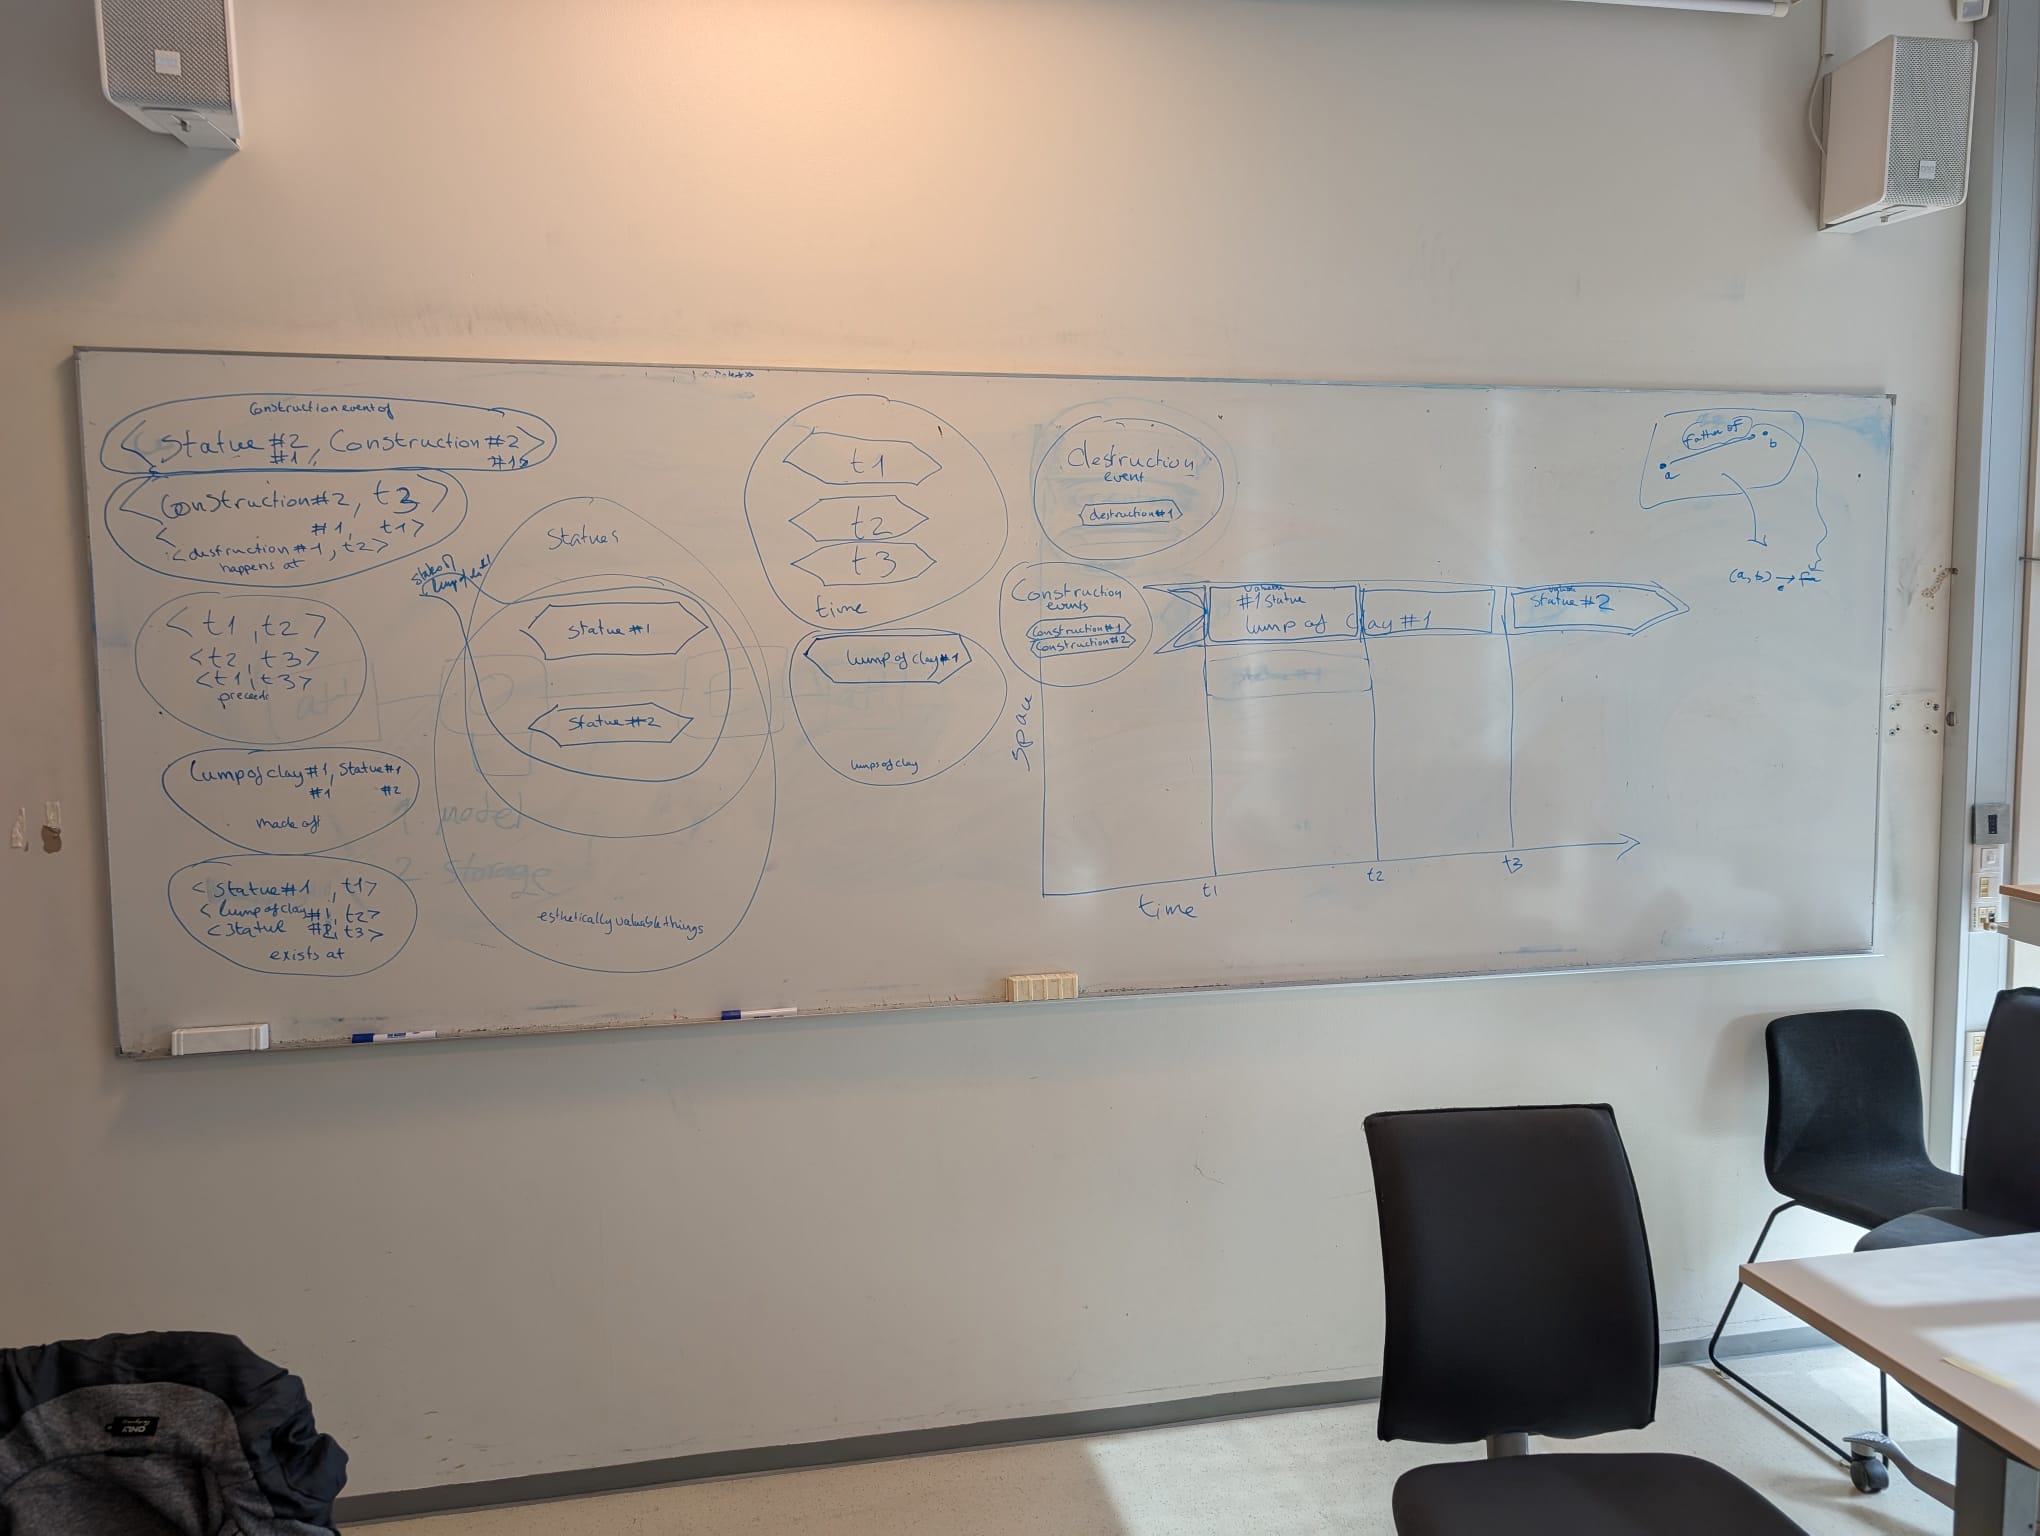 Construction event of
<Statue #2, Construction #2>
#1, #1>
<Construction #2, t3>
< #1, t1>
<destruction #1, t2>
happens at
<t1, t2>
<t2, t3>
<t1, t3>
precede
Lump of clay #1, Statue #1
#1 #2
made of
<Statue #1, t1>
<Lump of clay #1, t2>
<Statue #2, t3>
exists at
Statues
States of
Statue #1
Statue #2
esthetically valuable things
1. model
2. storage
t1
t2
t3
time
Lump of clay #1
Lumps of clay
destruction
event
destruction #1
Construction
events
Construction #1
Construction #2
space
#1 Statue
Lump of Clay #1
Statue #2
t1
t2
t3
time
father of
a
b
(a, b) →
ONLY